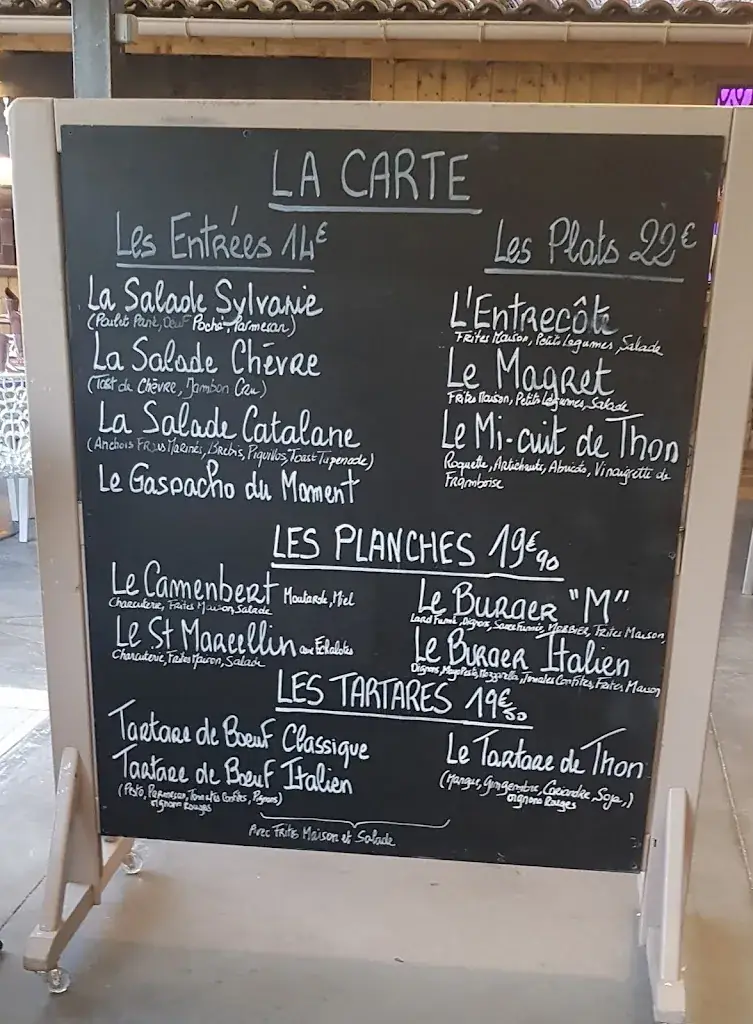 LA CARTE
Les Entrées 14€
La Salade Sylvanie
(Poulet Pané, Oeuf Poché, Parmesan)
La Salade Chèvre
(Toast de Chèvre, Jambon Cru)
La Salade Catalane
(Anchois Frais Marinés, Brebis, Piquillos, Toast Tapenade)
Le Gaspacho du Moment
Les Plats 22€
L'Entrecôte
Frites Maison, Petits Légumes, Salade
Le Magret
Frites Maison, Petits Légumes, Salade
Le Mi-cuit de Thon
Roquette, Artichauts, Abricots, Vinaigrette de
Framboise
LES PLANCHES 19€90
Le Camembert Moutarde, Miel
Charcuterie, Frites Maison, Salade
Le St Marcellin aux Echalotes
Charcuterie, Frites Maison, Salade
Le Burger "M"
Lard Fumé, Oignons, Sauce Fumée, MORBIER, Frites Maison,
Le Burger Italien
Oignons, Mayo Pesto, Mozzarella, Tomates Confites, Frites Maison
LES TARTARES 19€50
Tartare de Boeuf Classique
Tartare de Boeuf Italien
(Pesto, Parmesan, Tomates Confites, Pignons)
oignons Rouges
Le Tartare de Thon
(Mangue, Gingembre, Coriandre, Soja,)
oignons Rouges
Avec Frites Maison et Salade